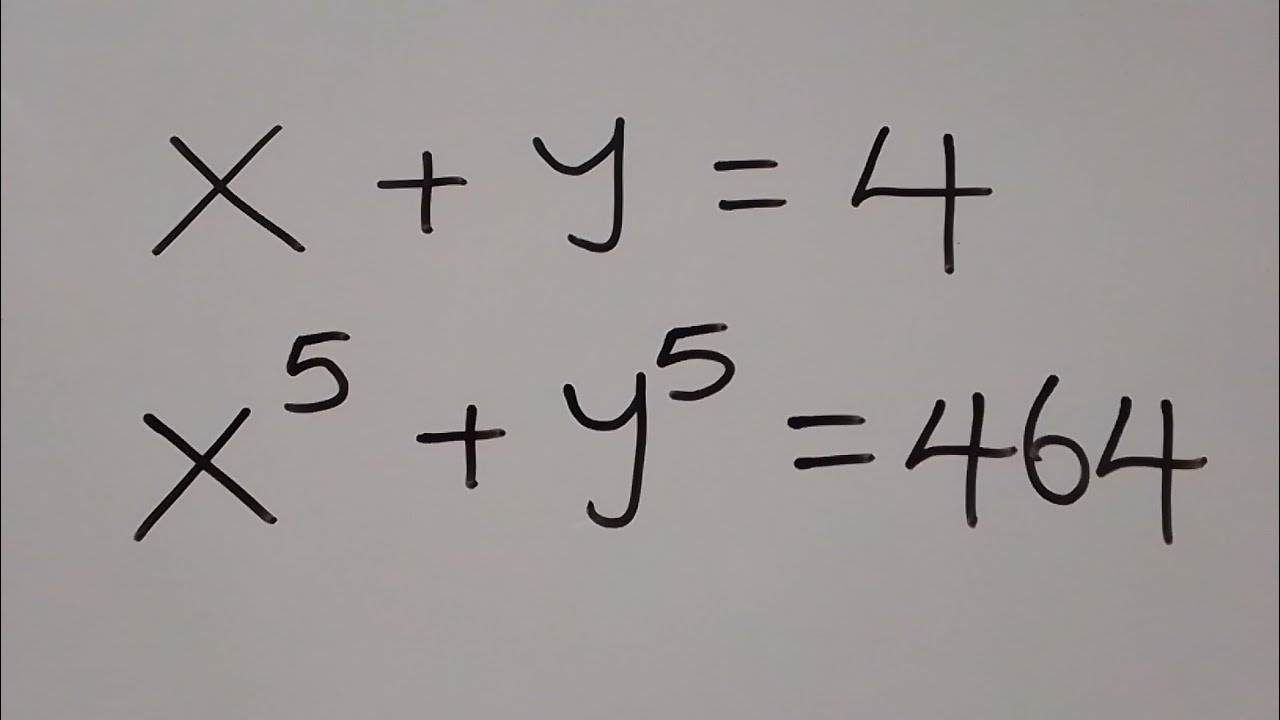 x + y = 4
x⁵ + y⁵ = 464